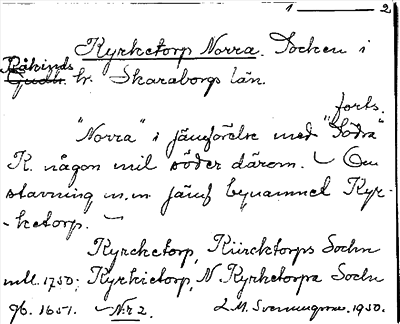 1 — 2
Kyrketorp Norra. Socken i
Kåkinds
Gudh. hr. Skaraborgs län.
forts.
"Norra" i jämförelse med "Södra"
K. någon mil söder därom. — Om
stavning m.m jämf bynamnet Kyr-
-ketorp. —
Kyrcketorp, Kürcktorps Sochn
mtl. 1750; Kyrkietorp, N. Kyrketorpa Sochn
gb. 1651. Nr 2. L.M. Svenungsson. 1950.